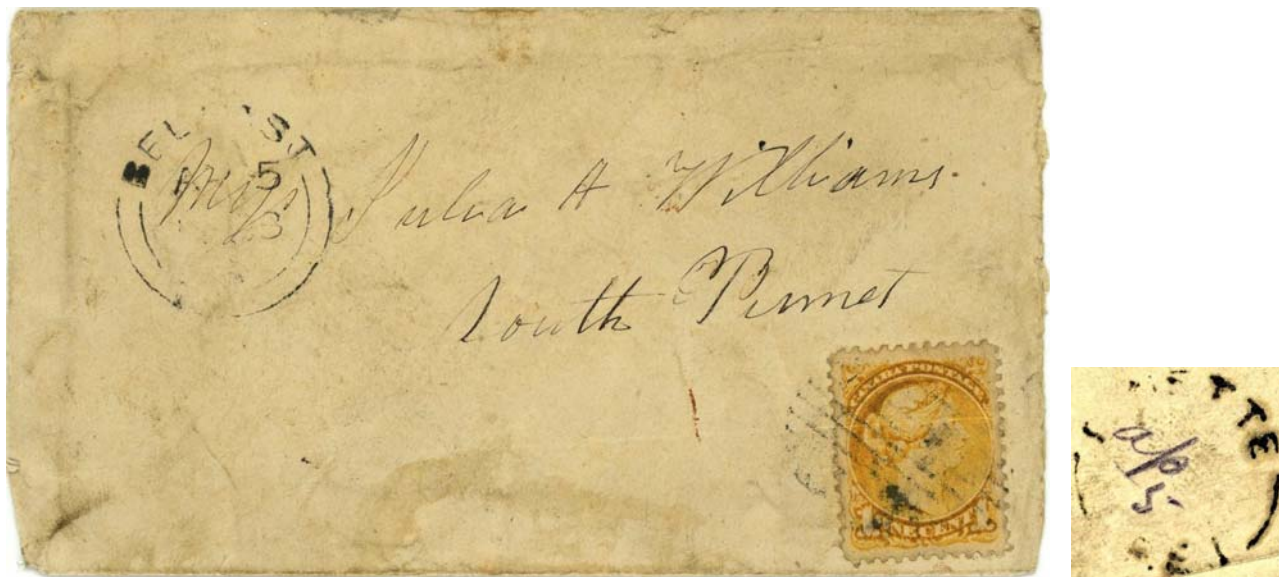 BEL ST
5
Miss Julia A Williams.
South Pumet
CANADA POSTAGE
1 ONE CENT 1
ATE
ap
5